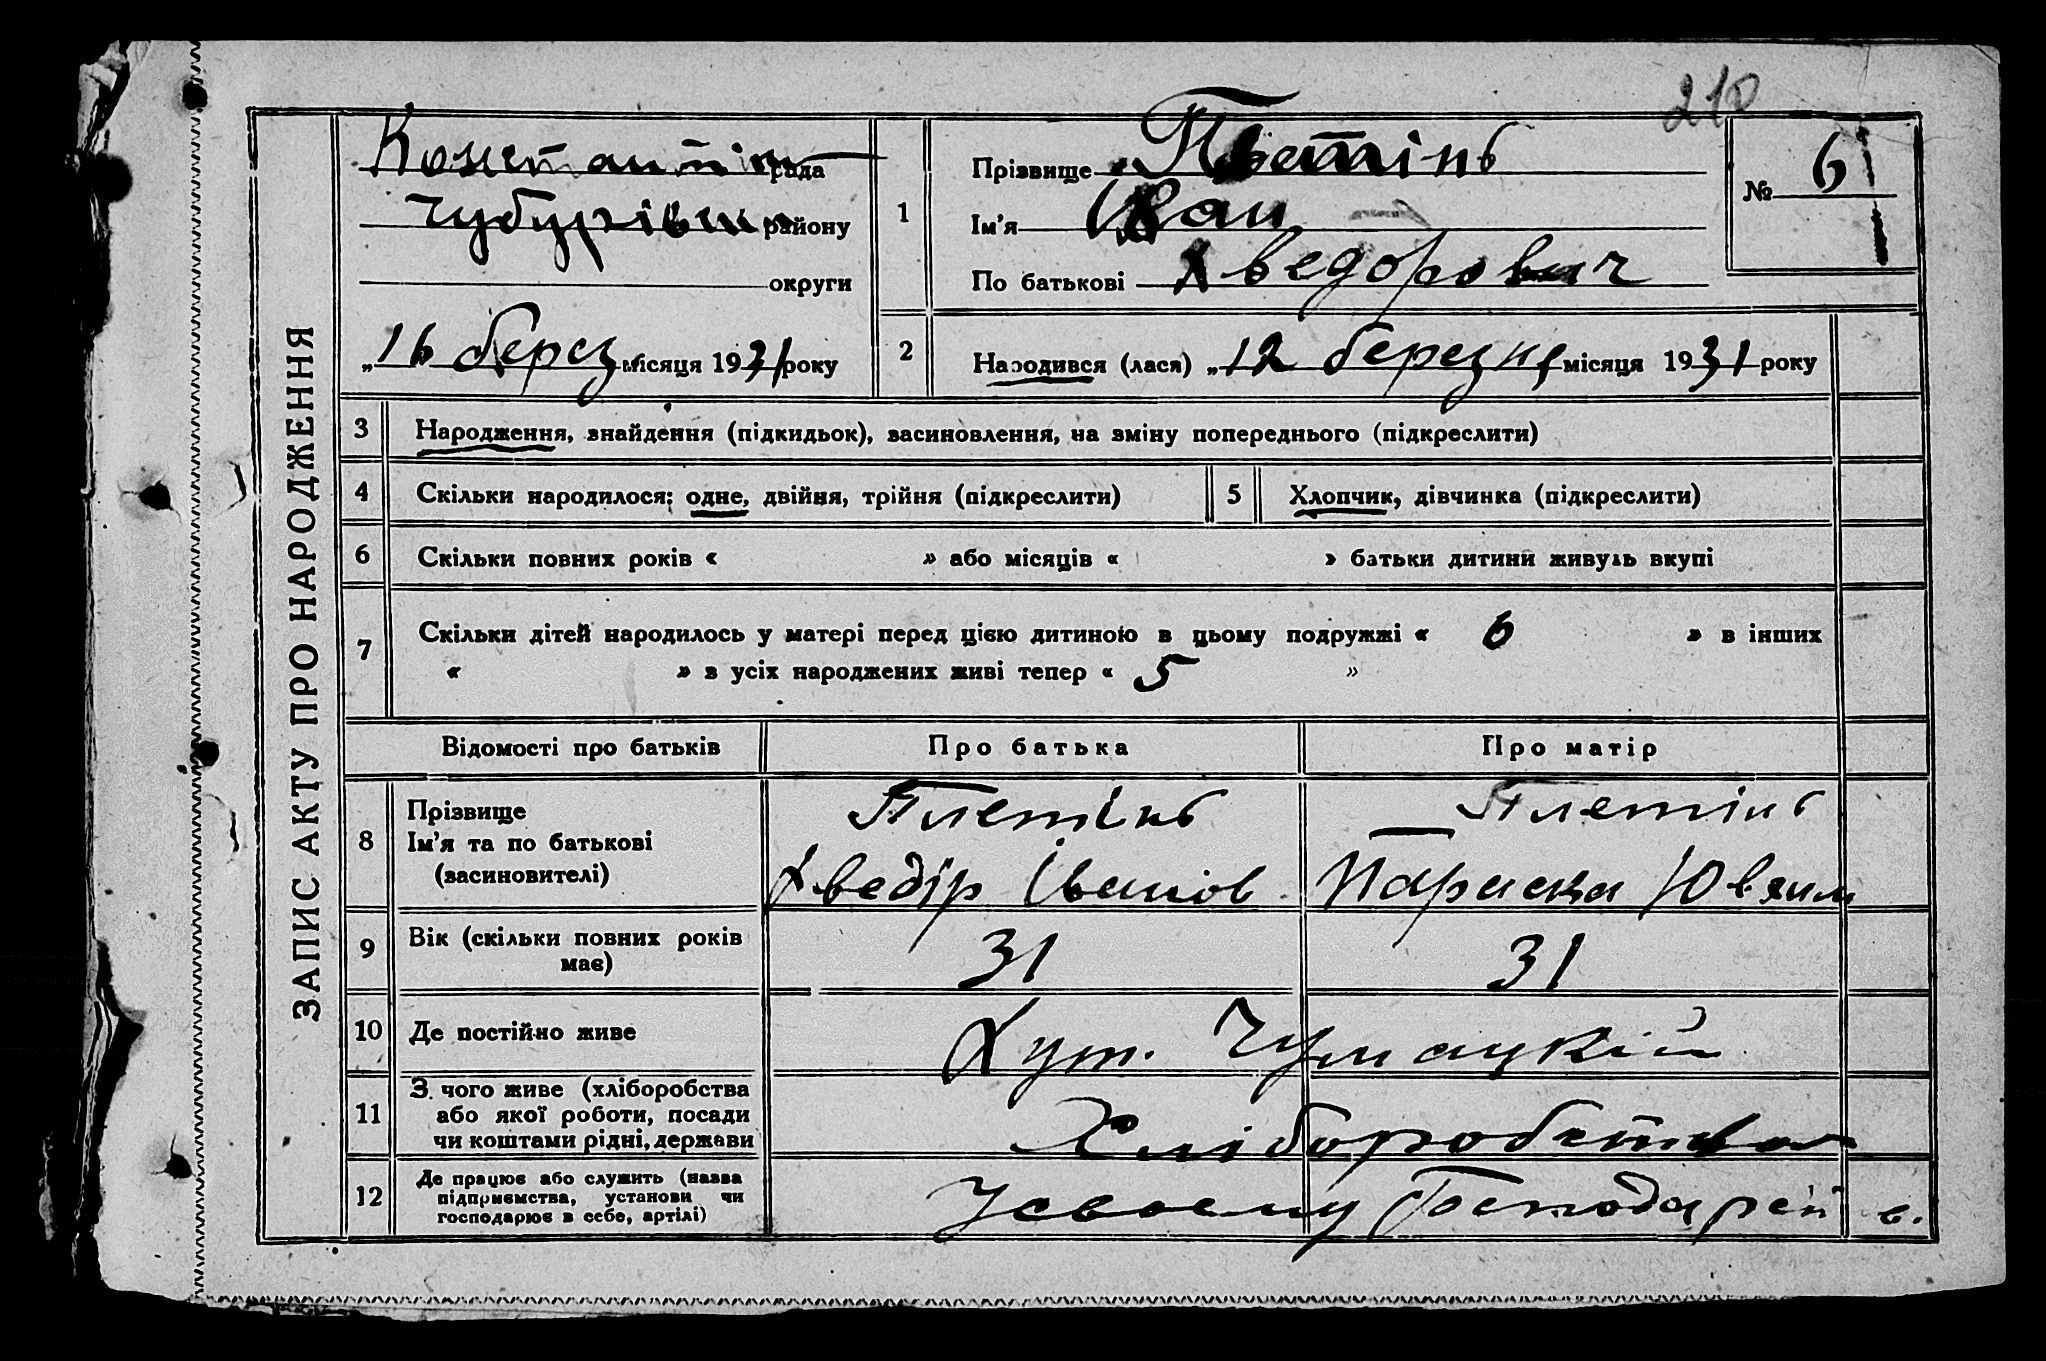 210
ЗАПИС АКТУ ПРО НАРОДЖЕННЯ
Константін рада
Чубурівськ району
округи
„16 берез місяця 1931 року
1
Прізвище Плетінь
Ім'я Іван
По батькові Хведорович
№ 6
2
Народився (лася) „12 березня місяця 1931 року
3 Народження, знайдення (підкидьок), засиновлення, на зміну попереднього (підкреслити)
4 Скільки народилося: одне, двійня, трійня (підкреслити) 5 Хлопчик, дівчинка (підкреслити)
6 Скільки повних років « » або місяців « » батьки дитини живуть вкупі
7 Скільки дітей народилось у матері перед цією дитиною в цьому подружжі « 6 » в інших
« » в усіх народжених живі тепер « 5 »
Відомості про батьків Про батька Про матір
8 Прізвище
Ім'я та по батькові
(засиновителі)
Плетінь
Хведір Іванов
Плетінь
Параска Ювхим
9 Вік (скільки повних років
має)
31 31
10 Де постійно живе Хут. Чумацкій
11 З чого живе (хліборобства
або якої роботи, посади
чи коштами рідні, держави
Хліборобства
12 Де працює або служить (назва
підприємства, установи чи
господарює в себе, артілі)
Усвоєму Господарсті в.